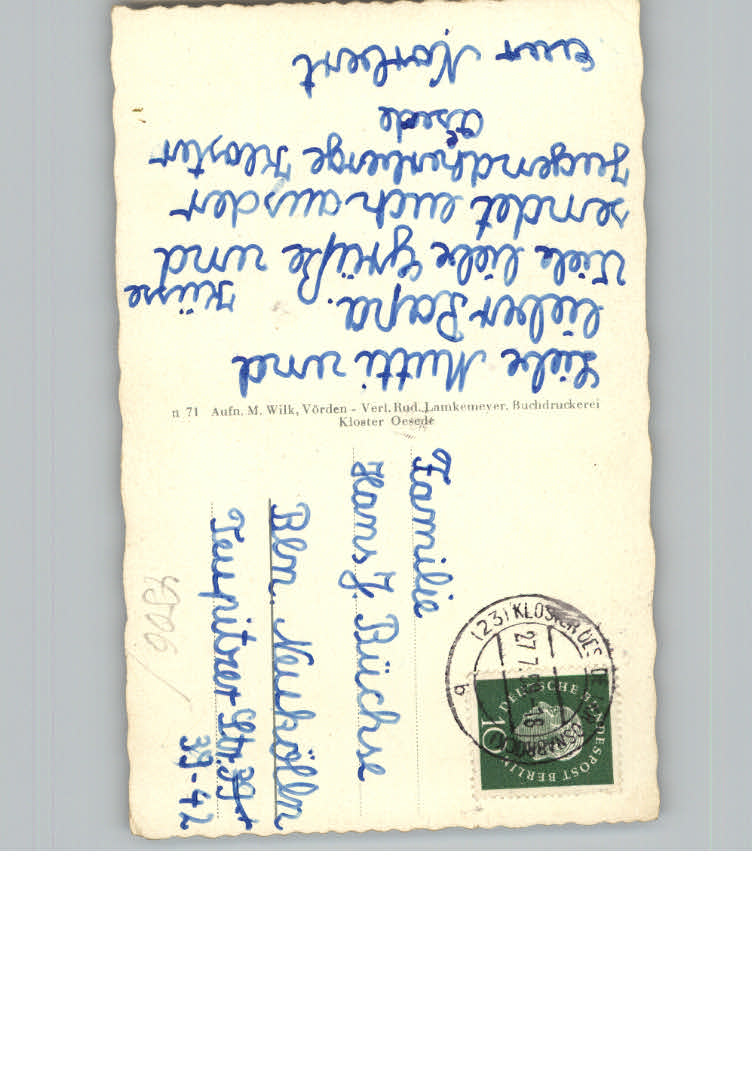 Liebe Mutti und
lieber Papa.
Viele liebe Grüße und Küsse
sendet euch aus der
Jugendherberge Kloster
Oesede
Euer Norbert
n 71 Aufn. M. Wilk, Vörden - Verl. Rud. Lamkemeyer, Buchdruckerei
Kloster Oesede
Familie
Hans J. Büchse
Bln. Neukölln
Teupitzer Str. 39
39-42
(23) KLOSTER OESEDE
27.7.
OSNABRÜCK
q
DEUTSCHE BUNDESPOST BERLIN
10